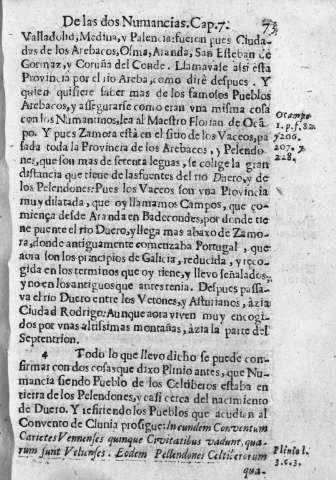 De las dos Numancias. Cap. 7. 73
Valladolid, Medina, y Palencia: fueron pues Ciuda-
des de los Arebacos, Osma, Aranda, San Esteban de
Gormaz, y Coruña del Conde. Llamavase assi esta
Provincia por el rio Areba, como dirè despues. Y
quien quisiere saber mas de los famosos Pueblos
Arebacos, y assegurarse como eran vna misma cosa
con los Numantinos, lea al Maestro Florian de Oca-
po. Y pues Zamora està en el sitio de los Vaceos, pa-
sada toda la Provincia de los Arebacos, y Pelendo-
nes, que son mas de setenta leguas, se colige la gran
distancia que tiene de las fuentes del rio Duero, y de
los Pelendones: Pues los Vaceos son vna Provincia
muy dilatada, que oy llamamos Campos, que co-
miença desde Aranda en Badecondes, por donde tie-
ne puente el rio Duero, y llega mas abaxo de Zamo-
ra, donde antiguamente comenzaba Portugal, que
aora son los principios de Galicia, reducida, y reco-
gida en los terminos que oy tiene, y llevo señalados,
y no en los antiguos que antes tenia. Despues passa-
va el rio Duero entre los Vetones, y Asturianos, àzia
Ciudad Rodrigo: Aunque aora viven muy encogi-
dos por vnas altissimas montañas, àzia la parte del
Septentrion.
4 Todo lo que llevo dicho se puede con-
firmar con dos cosas que dixo Plinio antes, que Nu-
mancia siendo Pueblo de los Celtiberos estaba en
tierra de los Pelendones, y casi cerca del nacimiento
de Duero. Y refiriendo los Pueblos que acudian al
Convento de Clunia prosigue: In eundem Conventum
Carietes Vennenses quinque Civitatibus vadunt, qua-
rum sunt Velienses. Eodem Pellendones Celtiberorum
qua-
Ocampo
1. p. f. 82.
y 206.
207. y
228.
Plinio l.
3. c. 3.